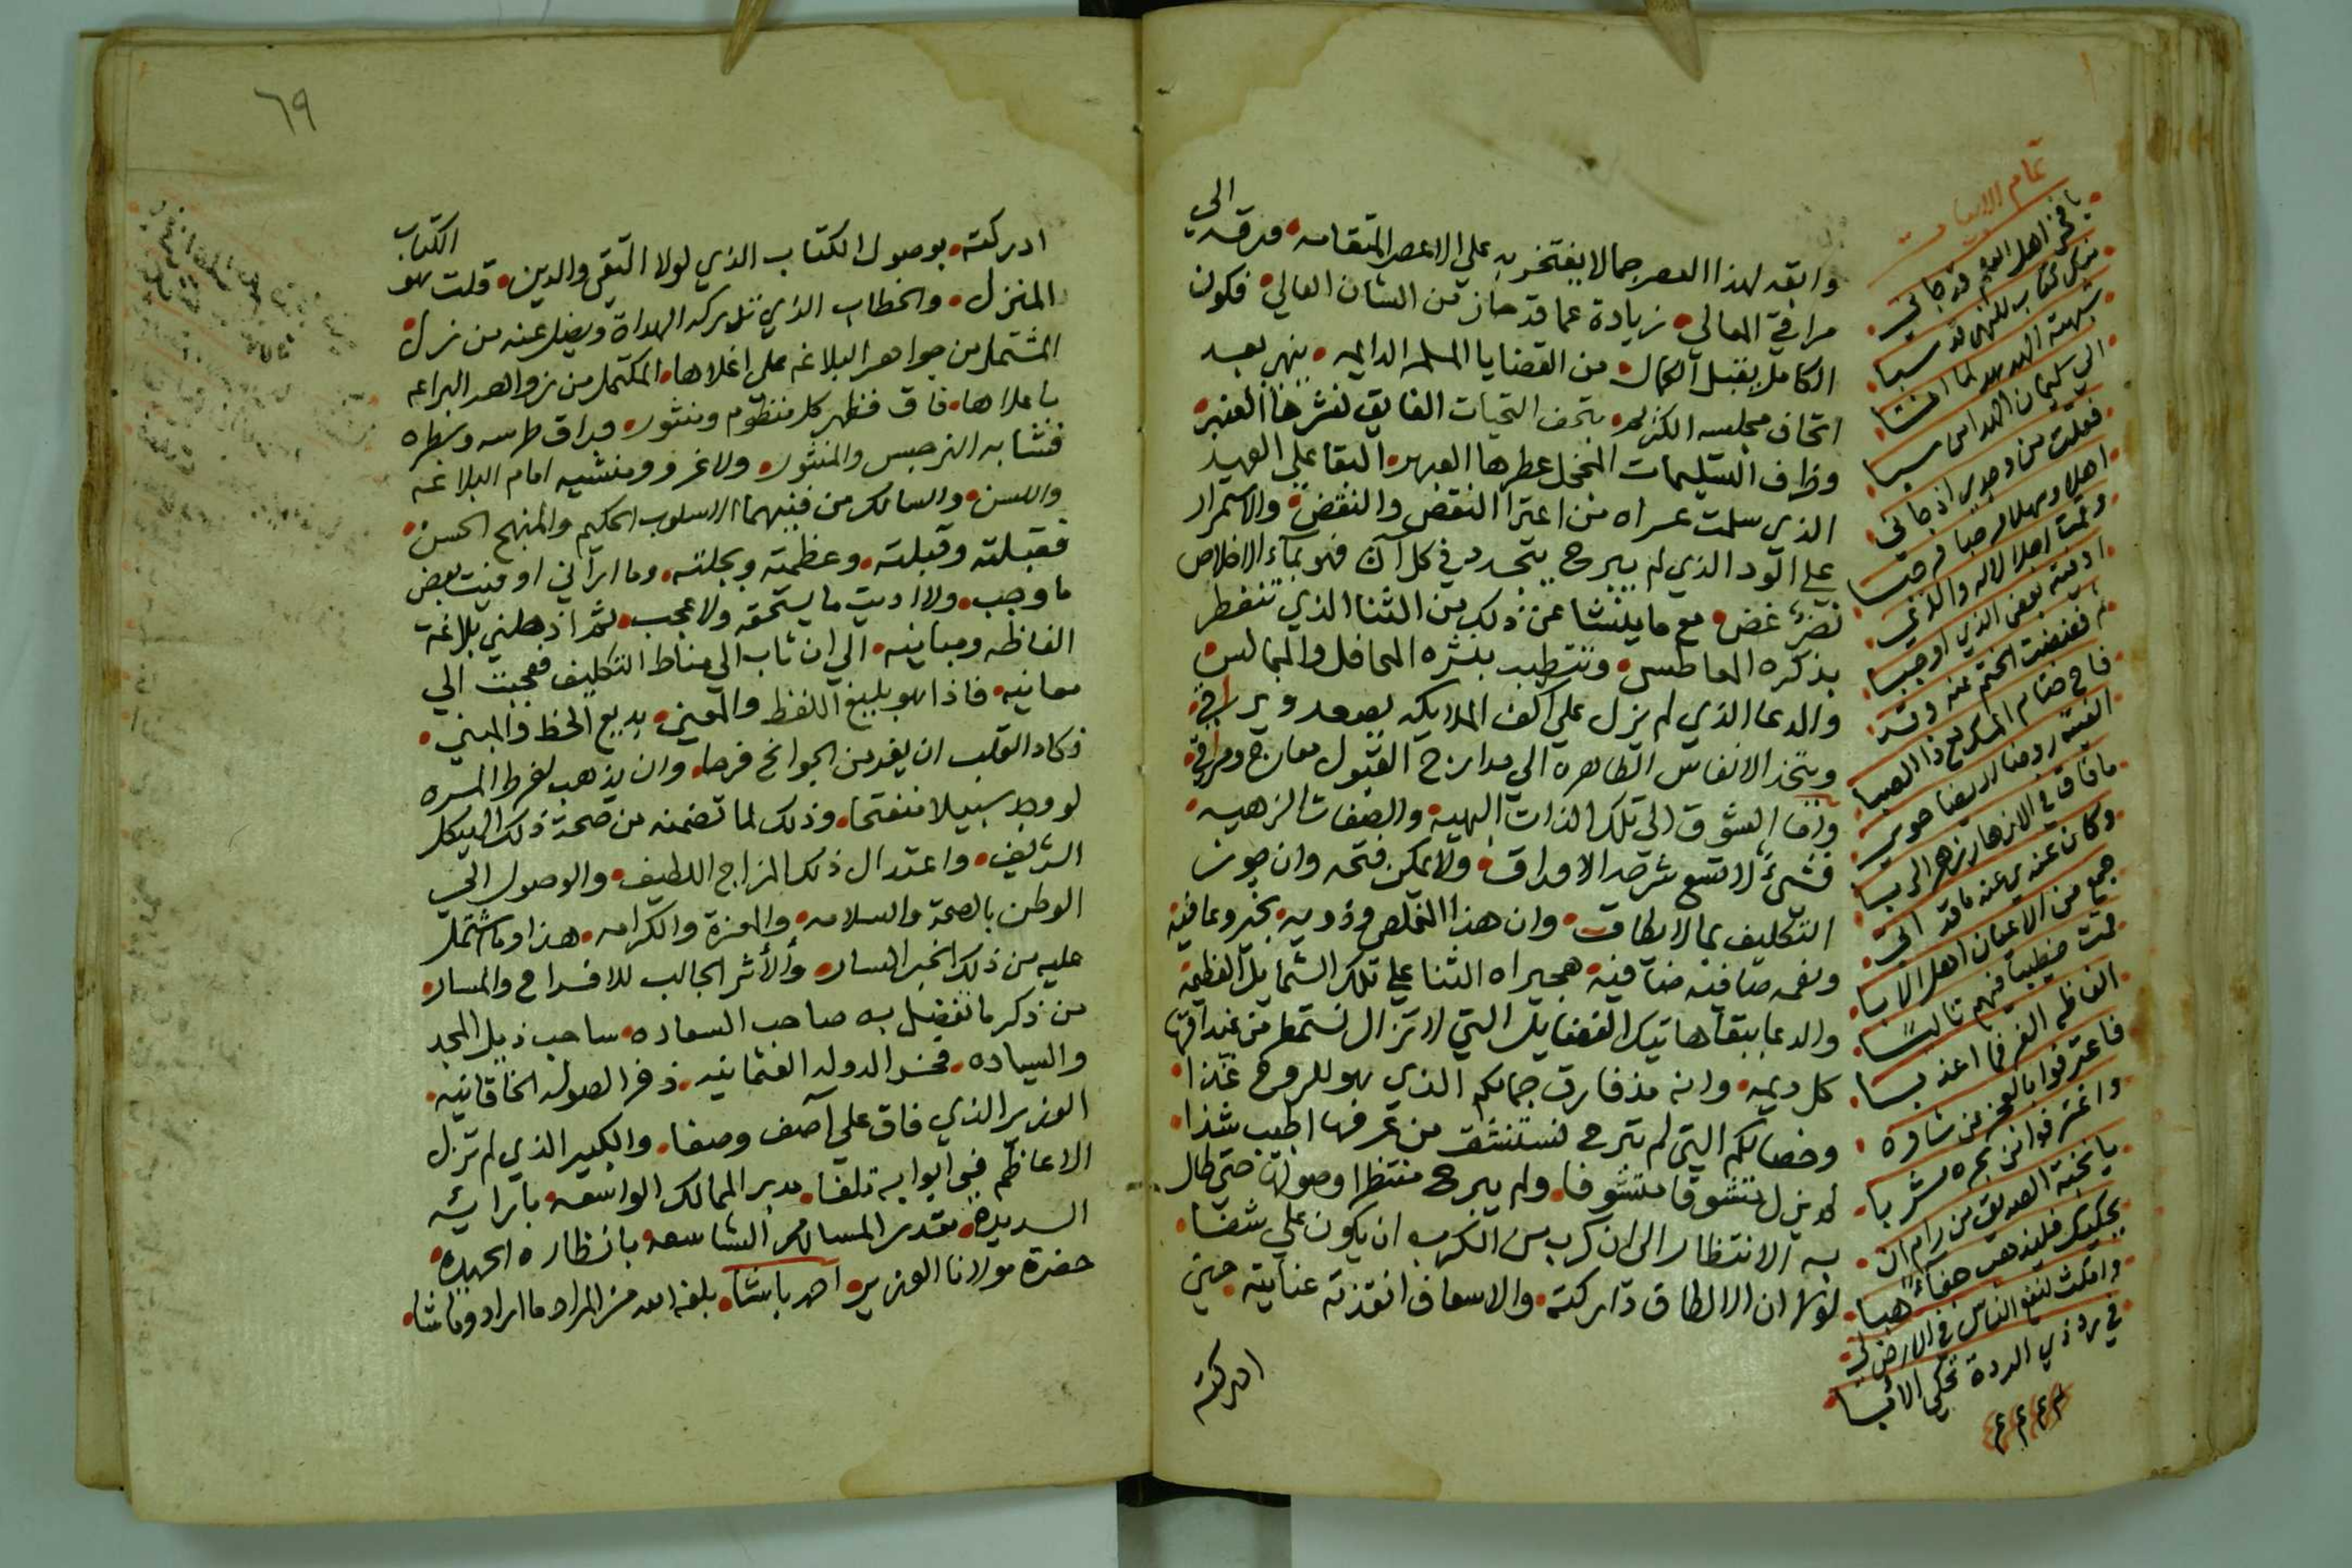 الى
وابقه لهذا العصر جمالا يفتخر به علي الاعصر المتقامه • ورقه
مراقي المعالي • زيادة عما قد حاز من الشان العالي • فكون
الكامل يقبل الكمال • من القضايا المسلمه الدايمه • ينهي بعد
اتحاف مجلسه الكريم • بتحف التحيات الفايق نشرها العنبر •
وظرف التسليمات المخجل عطرها العبهر • البقا علي العهد
الذي سلمت عراه من اعترا النقض والنقض • والاستمرار
على الود الذي لم يبرح يتجدد في كل آن فهو بماء الاخلاص
نضر غض • مع ما ينشا عن ذلك من الثنا الذي تتعطر
بذكره المعاطس • وتتطيب بنشره المحافل والمجالس
والدعا الذي لم يزل علي اكف الملايكه يصعد ويراقي •
ويتخذ الانفاس الطاهره الى مدارج القبول معارج ومراقي •
واما الشوق الى تلك الذات البهيه • والصفات الزهيه •
فشيء لا تسع شرحه الاوراق • ولا يمكن فتحه وان جوز
التكليف بما لا يطاق • وان هذا المخلص وذويه • بخير وعافيه
ونعمه صافيه ضافيه • هجيراه الثنا علي تلك الشمايل العظيمه
والدعا ببقا هاتيك الفضايل التي لا تزال نستمطر من غيداقها
كل ديمه • وانه مذ فارق جمالكم الذي هو للروح غذا •
وخصالكم التي لم تبرح نستنشق من عرفها اطيب شذا •
لم يزل متشوقا متشوفا • ولم يبرح منتظرا وصولكم حتي طال
به الانتظار الى ان كرب من الكرب ان يكون علي شفا •
لولا ان الالطاف تداركته • والاسعاف انقذته عنايته • حين
ادركته
تمام الابيات
يا فخر اهل العلم قد جاني •
منكل كتاب للنهى قد سبا •
شبهته الهدهد لما انثنا •
الي سليمان الهدا من سبا
فقلت من وجدي اذ جاني •
اهلا وسهلا مرحبا مرحبا
وقمت اجلالا له والذي •
اوليته بعض الذي اوجبا •
ثم فضضت الختم عنه وقد •
فاح ختام المسك مع ذا الصبا
الفيته روضا اريضا حوى •
ما فاق في الازهار زهر الربا
وكان عندي عنه ما قد اتى •
جمع من الاعيان اهل الابا
قمت خطيبا فيهم تاليا •
الفاظه الغر فما اعذبا •
فاعترفوا بالعجز من شاوه •
واغترفوا من بحره مشربا •
يا نخبة الصديق من رام ان •
يحكيك فليذهب جفاء هبا •
وامكث لنفع الناس في الارض لي •
في برد ذي الردة تحكي الابيا •
٦٩
الكتاب
ادركته • بوصول الكتاب الذي لولا التقي والدين • قلت هو
المنزل • والخطاب الذي تدركه الهداة ويضل عنه من نزل •
المشتمل من جواهر البلاغه علي اغلاها • المكتمل من زواهر البراعه
باعلاها • فاق فنظر كل منظوم ومنثور • وراق طرسه وسطره
فتشابه النرجس والمنثور • ولا غرو ومنشيه امام البلاغه
واللسن • والسالك من فنيهما الاسلوب الحكيم والمنهج الحسن •
فقبلته وقبلته • وعظمته وبجلته • وما ارآني اوفيت بعض
ما وجب • ولا اديت ما يستحقه ولا عجب • ثم اذهلني بلاغة
الفاظه ومبانيه • الي ان ثاب الي مناط التكليف فعجبت الي
معانيه • فاذا هو بليغ اللفظ والمعني • بديع الحظ والمبني •
فكاد القلب ان يفر من الجوانح فرحا • وان يذهب لفرط المسره
لو وجد سبيلا منفتحا • وذلك لما تضمنه من صحة ذلك الهيكل
الشريف • واعتدال ذلك المزاج اللطيف • والوصول الي
الوطن بالصحة والسلامه • والعزة والكرامه • هذا وما اشتمل
عليه من ذلك الخبر السار • والأثر الجالب للافراح والمسار •
من ذكر ما تفضل به صاحب السعاده • ساحب ذيل المجد
والسياده • فخر الدوله العثمانيه • ذخر الصوله الخاقانيه •
الوزير الذي فاق علي آصف وصفا • والكبير الذي لم تزل
الاعاظم في ابوابه تلفا • مدبر الممالك الواسعه بآرائه
السديده • مقدر المسالك الشاسعه بانظاره الحميده •
حضرة مولانا الوزير • احمد باشا • بلغه الله من المراد ما اراد وما شا •